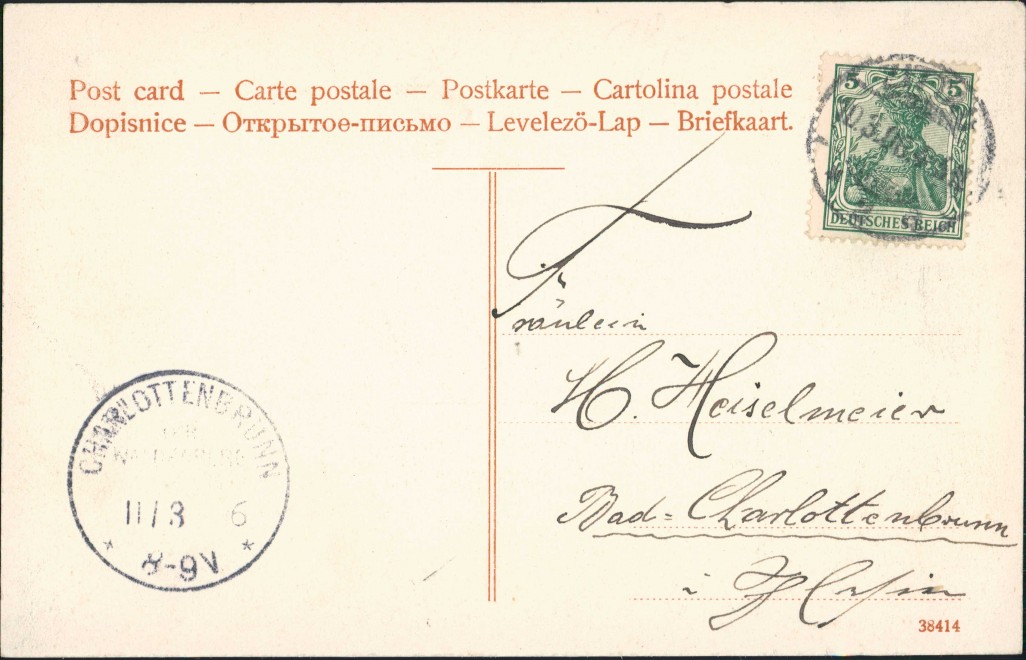 Post card — Carte postale — Postkarte — Cartolina postale
Dopisnice — Открытое-письмо — Levelezö-Lap — Briefkaart.
5 5
DEUTSCHES REICH
Fräulein
H. Heiselmeier
Bad=Charlottenbrunn
i
CHARLOTTENBRUNN
11/3 6
* 8-9V *
38414